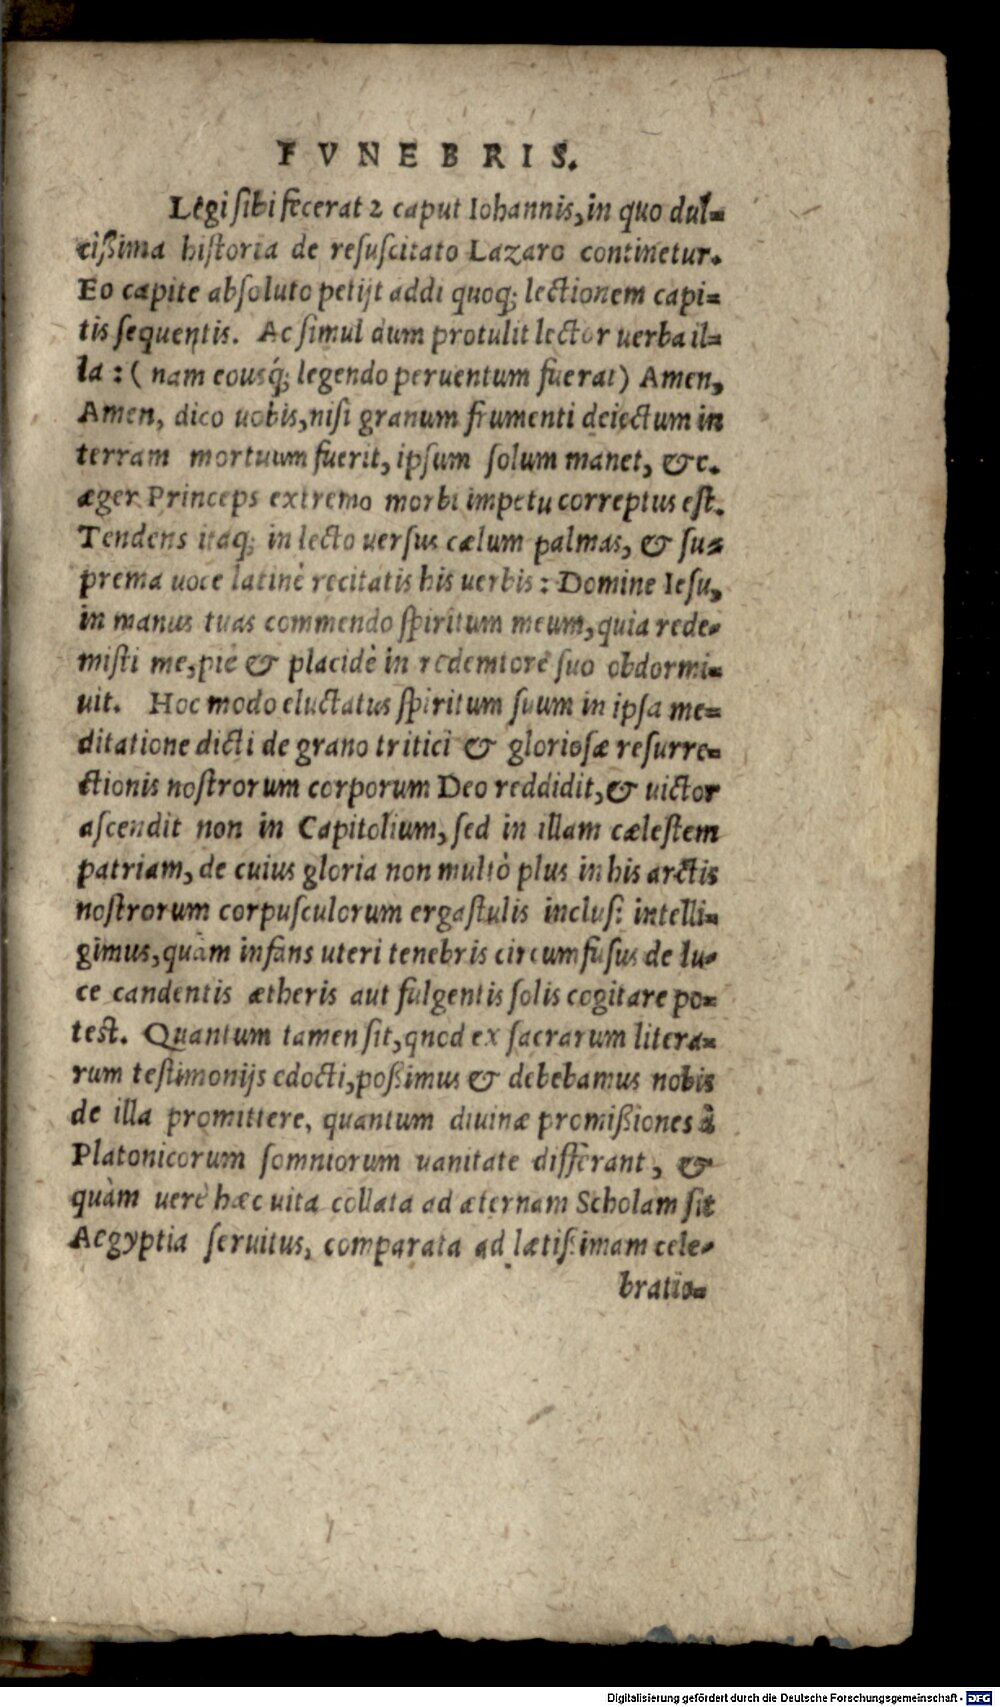 FVNEBRIS.
Legi sibi fecerat 2 caput Iohannis, in quo dul=
cißima historia de resuscitato Lazaro continetur.
Eo capite absoluto petijt addi quoq; lectionem capi=
tis sequentis. Ac simul dum protulit lector uerba il=
la: (nam eousq́; legendo peruentum fuerat) Amen,
Amen, dico uobis, nisi granum frumenti deiectum in
terram mortuum fuerit, ipsum solum manet, &c.
æger Princeps extremo morbi impetu correptus est.
Tendens itaq; in lecto uersus cælum palmas, & su=
prema uoce latinè recitatis his uerbis: Domine Iesu,
in manus tuas commendo spiritum meum, quia rede=
misti me, piè & placidè in redemtore suo obdormi=
uit. Hoc modo eluctatus spiritum suum in ipsa me=
ditatione dicti de grano tritici & gloriosæ resurre=
ctionis nostrorum corporum Deo reddidit, & uictor
ascendit non in Capitolium, sed in illam cælestem
patriam, de cuius gloria non multò plus in his arctis
nostrorum corpusculorum ergastulis inclusi intelli=
gimus, quàm infans uteri tenebris circumfusus de lu=
ce candentis ætheris aut fulgentis solis cogitare po=
test. Quantum tamen sit, qnod ex sacrarum litera=
rum testimonijs edocti, poßimus & debebamus nobis
de illa promittere, quantum diuinæ promißiones à
Platonicorum somniorum uanitate differant, &
quàm uerè hæc uita collata ad æternam Scholam sit
Aegyptia seruitus, comparata ad lætißimam cele=
bratio=
Digitalisierung gefördert durch die Deutsche Forschungsgemeinschaft - DFG